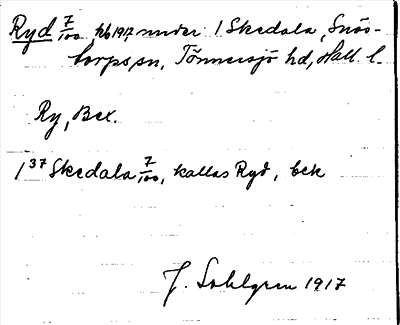 Ryd 7/100 kb 1917 under 1 Skedala, Snös-
torps sn, Tönnersjö hd, Hall. l.
Ry, Bex.
1 37 Skedala 7/100, kallas Ryd, bek
J. Sahlgren 1917